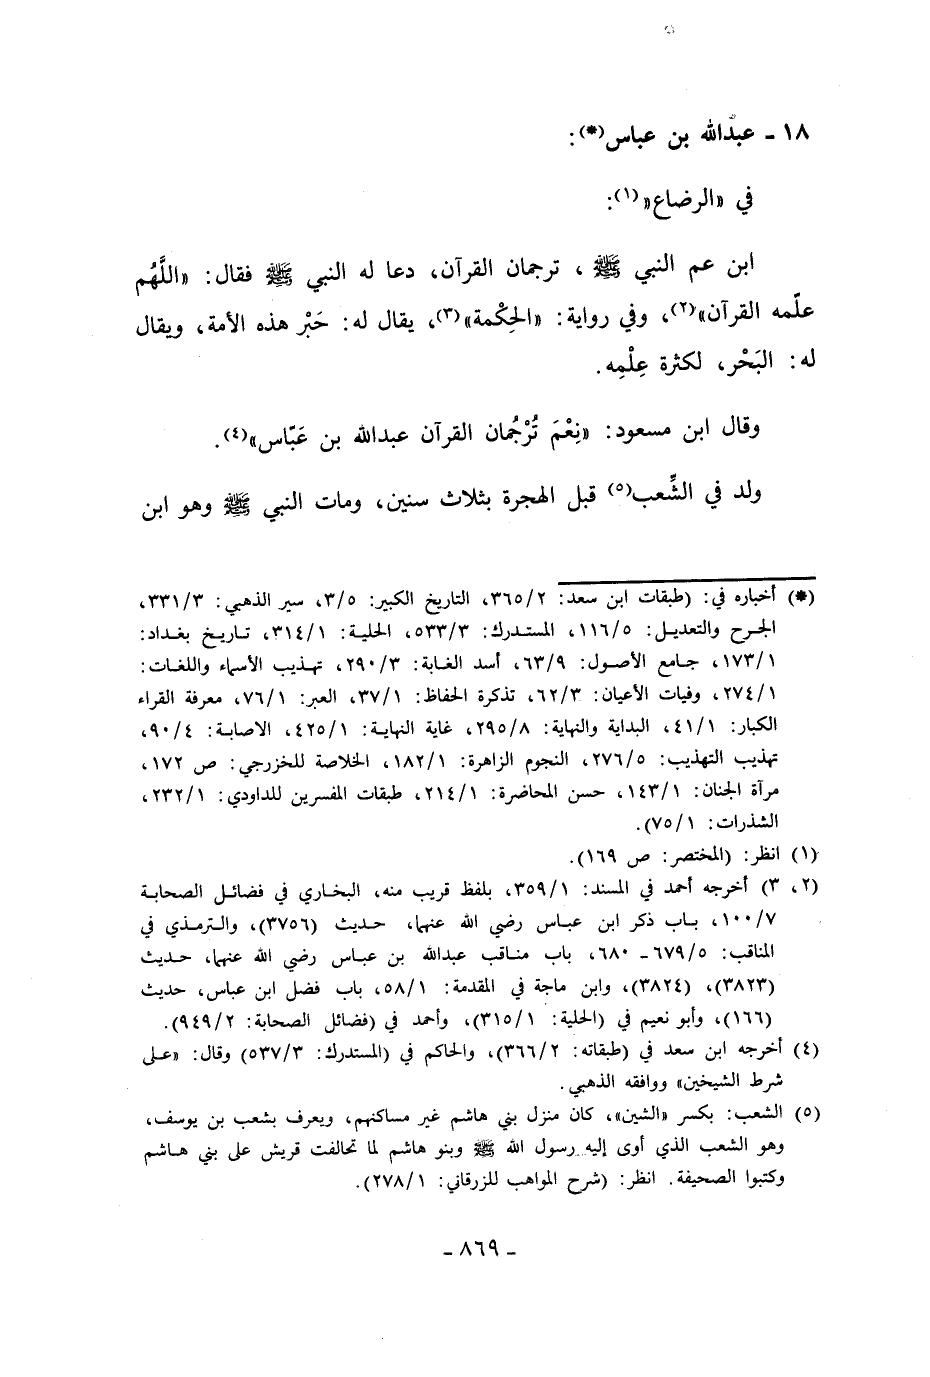 ١٨ - عبدالله بن عباس(*):
في «الرضاع»(١):
ابن عم النبي ﷺ ، ترجمان القرآن، دعا له النبي ﷺ فقال: «اللَّهُم
علّمه القرآن»(٢)، وفي رواية: «الحِكْمة»(٣)، يقال له: حَبْر هذه الأمة، ويقال
له: البَحْر، لكثرة عِلْمِه.
وقال ابن مسعود: «نِعْمَ تُرْجُمان القرآن عبدالله بن عَبّاس»(٤).
ولد في الشِّعب(٥) قبل الهجرة بثلاث سنين، ومات النبي ﷺ وهو ابن
(*) أخباره في: (طبقات ابن سعد: ٣٦٥/٢، التاريخ الكبير: ٣/٥، سير الذهبي: ٣٣١/٣،
الجرح والتعديل: ١١٦/٥، المستدرك: ٥٣٣/٣، الحلية: ٣١٤/١، تاريخ بغداد:
١٧٣/١، جامع الأصول: ٦٣/٩، أسد الغابة: ٢٩٠/٣، تهذيب الأسماء واللغات:
٢٧٤/١، وفيات الأعيان: ٦٢/٣، تذكرة الحفاظ: ٣٧/١، العبر: ٧٦/١، معرفة القراء
الكبار: ٤١/١، البداية والنهاية: ٢٩٥/٨، غاية النهاية: ٤٢٥/١، الاصابة: ٩٠/٤،
تهذيب التهذيب: ٢٧٦/٥، النجوم الزاهرة: ١٨٢/١، الخلاصة للخزرجي: ص ١٧٢،
مرآة الجنان: ١٤٣/١، حسن المحاضرة: ٢١٤/١، طبقات المفسرين للداودي: ٢٣٢/١،
الشذرات: ٧٥/١).
(١) انظر: (المختصر: ص ١٦٩).
(٢، ٣) أخرجه أحمد في المسند: ٣٥٩/١، بلفظ قريب منه، البخاري في فضائل الصحابة
١٠٠/٧، باب ذكر ابن عباس رضي الله عنهما، حديث (٣٧٥٦)، والترمذي في
المناقب: ٦٧٩/٥ - ٦٨٠، باب مناقب عبدالله بن عباس رضي الله عنهما، حديث
(٣٨٢٣)، (٣٨٢٤)، وابن ماجة في المقدمة: ٥٨/١، باب فضل ابن عباس، حديث
(١٦٦)، وأبو نعيم في (الحلية: ٣١٥/١)، وأحمد في (فضائل الصحابة: ٩٤٩/٢).
(٤) أخرجه ابن سعد في (طبقاته: ٣٦٦/٢)، والحاكم في (المستدرك: ٥٣٧/٣) وقال: «على
شرط الشيخين» ووافقه الذهبي.
(٥) الشعب: بكسر «الشين»، كان منزل بني هاشم غير مساكنهم، ويعرف بشعب بن يوسف،
وهو الشعب الذي أوى إليه رسول الله ﷺ وبنو هاشم لما تحالفت قريش على بني هاشم
وكتبوا الصحيفة. انظر: (شرح المواهب للزرقاني: ٢٧٨/١).
- ٨٦٩ -